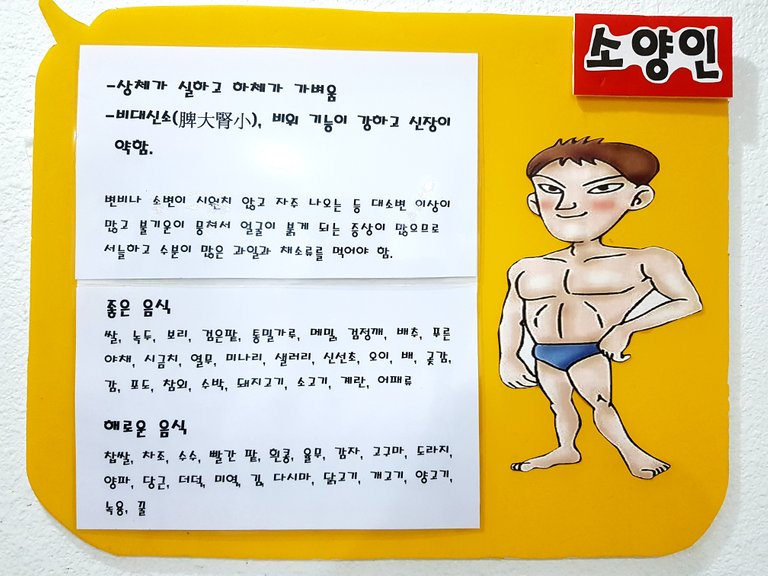 소양인
-상체가 실하고 하체가 가벼움
-비대신소(脾大腎小), 비위 기능이 강하고 신장이
약함.
변비나 소변이 시원치 않고 자주 나오는 등 대소변 이상이
많고 불기운이 뭉쳐서 얼굴이 붉게 되는 증상이 많으므로
서늘하고 수분이 많은 과일과 채소류를 먹어야 함.
좋은 음식
쌀, 녹두, 보리, 검은팥, 통밀가루, 메밀, 검정깨, 배추, 푸른
야채, 시금치, 열무, 미나리, 샐러리, 신선초, 오이, 배, 곶감,
감, 포도, 참외, 수박, 돼지고기, 소고기, 계란, 어패류
해로운 음식
찹쌀, 차조, 수수, 빨간 팥, 흰콩, 율무, 감자, 고구마, 도라지,
양파, 당근, 더덕, 미역, 김, 다시마, 닭고기, 개고기, 양고기,
녹용, 꿀